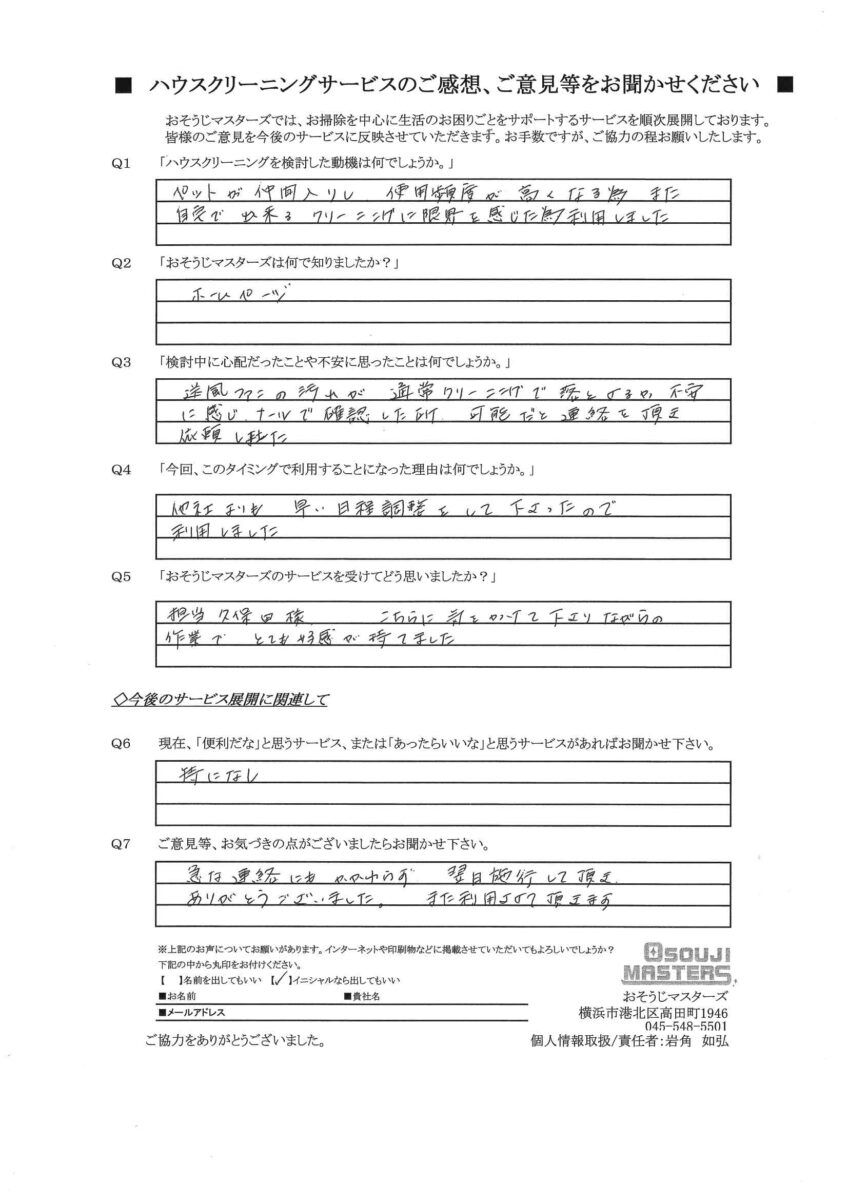 ■ ハウスクリーニングサービスのご感想、ご意見等をお聞かせください ■
おそうじマスターズでは、お掃除を中心に生活のお困りごとをサポートするサービスを順次展開しております。
皆様のご意見を今後のサービスに反映させていただきます。お手数ですが、ご協力の程お願いしたします。
Q1 「ハウスクリーニングを検討した動機は何でしょうか。」
ペットが仲間入りし 使用頻度が高くなる為 また
自宅で出来るクリーニングに限界を感じた為利用しました
Q2 「おそうじマスターズは何で知りましたか？」
ホームページ
Q3 「検討中に心配だったことや不安に思ったことは何でしょうか。」
送風ファンの汚れが 通常クリーニングで落とせるか 不安
に感じ メールで確認した所 可能だと連絡を頂き
依頼しました
Q4 「今回、このタイミングで利用することになった理由は何でしょうか。」
他社よりも 早い日程調整をして下さったので
利用しました
Q5 「おそうじマスターズのサービスを受けてどう思いましたか？」
担当 久保田様 こちらに気をかけて下さりながらの
作業で とても好感が持てました
◇今後のサービス展開に関連して
Q6 現在、「便利だな」と思うサービス、または「あったらいいな」と思うサービスがあればお聞かせ下さい。
特になし
Q7 ご意見等、お気づきの点がございましたらお聞かせ下さい。
急な連絡にも かかわらず 翌日施行して頂き
ありがとうございました。 また利用させて頂きます
※上記のお声についてお願いがあります。インターネットや印刷物などに掲載させていただいてもよろしいでしょうか？
下記の中から丸印をお付けください。
【 】名前を出してもいい 【✓】イニシャルなら出してもいい
■お名前 ■貴社名
■メールアドレス
ご協力をありがとうございました。
OSOUJI
MASTERS
おそうじマスターズ
横浜市港北区高田町1946
045-548-5501
個人情報取扱/責任者：岩角 如弘